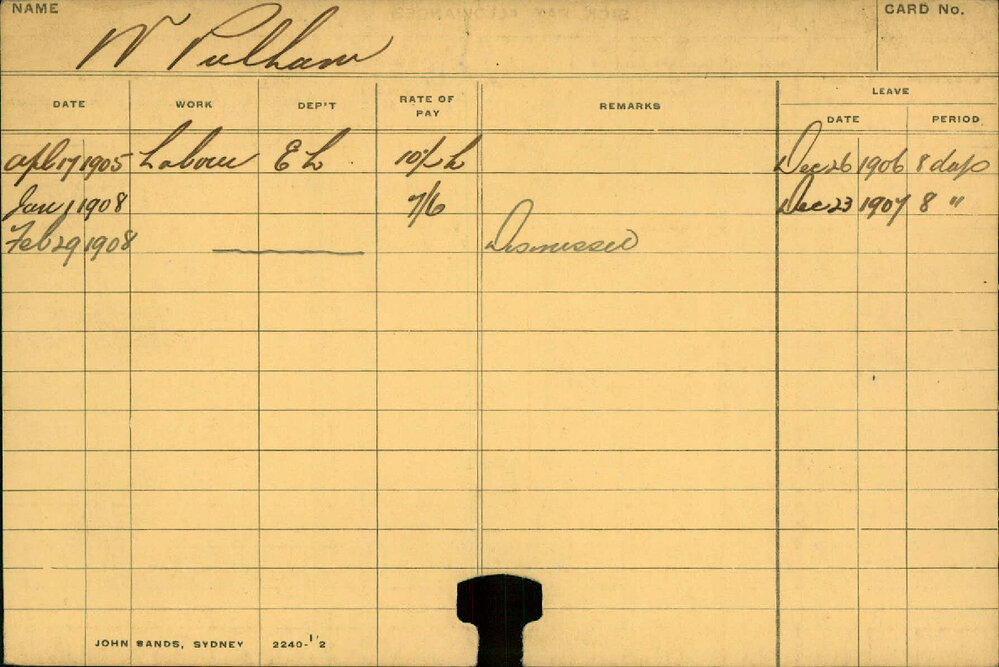 NAME
W Pulham
CARD No.
DATE WORK DEP'T RATE OF PAY REMARKS LEAVE
DATE PERIOD
Apl 17 1905 Labour E L Dec 26 1906 8 days
Jany 1 1908 7/6 Dec 23 1907 8 "
Feb 29 1908 Dismissed
JOHN SANDS, SYDNEY 2240-